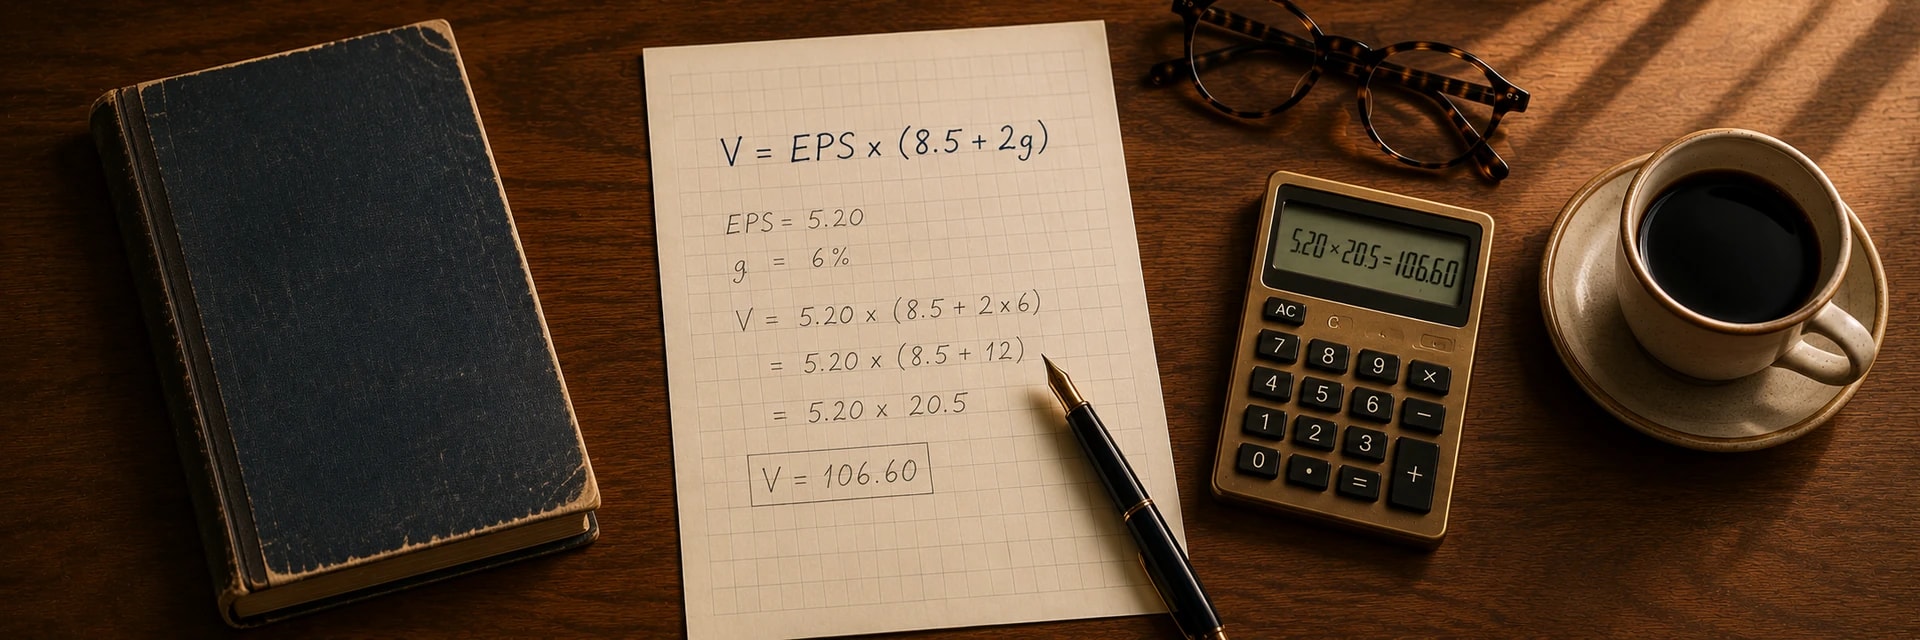 V = EPS × (8.5 + 2g)
EPS = 5.20
g = 6%
V = 5.20 × (8.5 + 2×6)
= 5.20 × (8.5 + 12)
= 5.20 × 20.5
V = 106.60
5.20×20.5=106.60
AC C
7 8 9 ×
4 5 6 −
1 2 3 +
0 • =